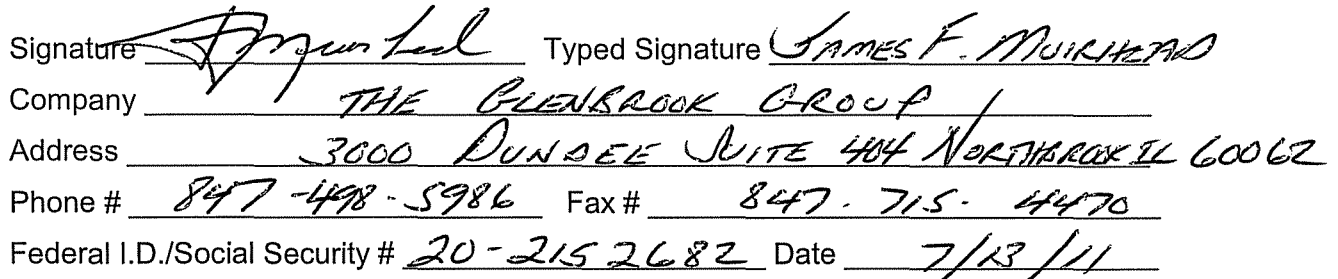 Signature Typed Signature JAMES F. MUIRHEAD
Company THE GLENBROOK GROUP
Address 3000 DUNDEE SUITE 404 NORTHBROOK IL 60062
Phone # 847-498-5986 Fax # 847. 715. 4470
Federal I.D./Social Security # 20-2152682 Date 7/13/11